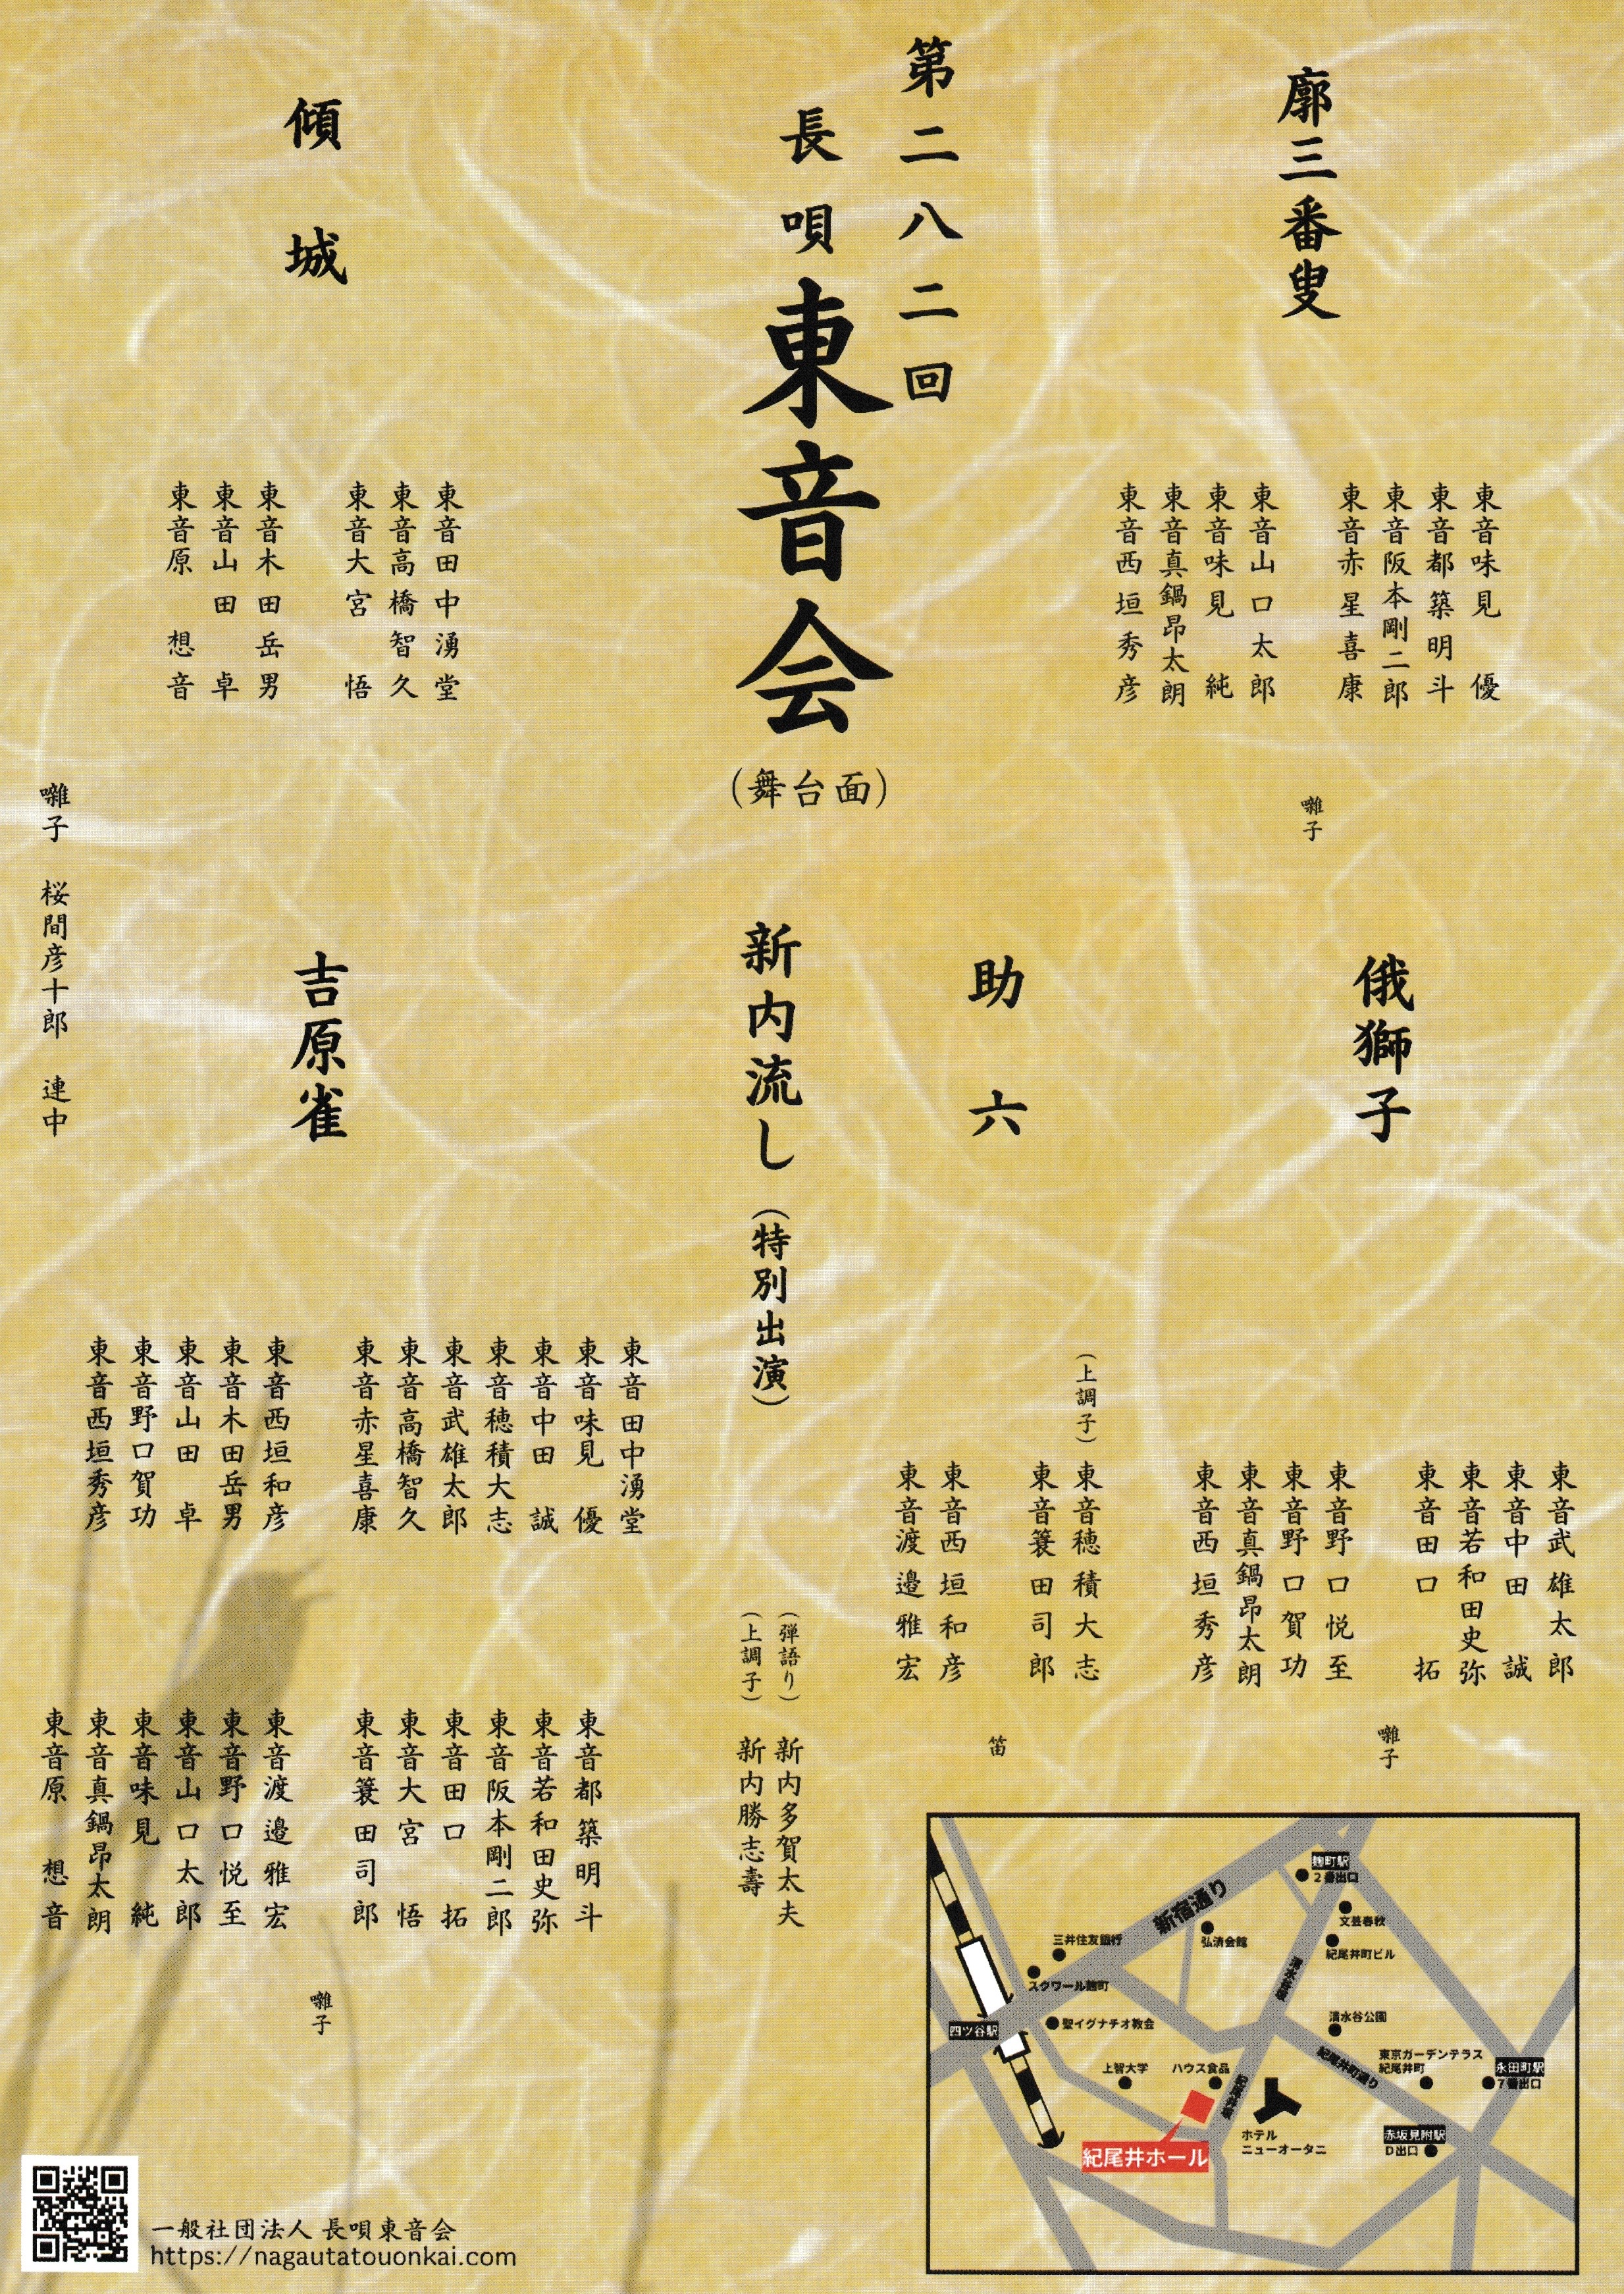 第二八二回
長唄 東音会
(舞台面)
廓三番叟
東音味見 優
東音都築明斗
東音阪本剛二郎
東音赤星喜康
東音山口太郎
東音味見 純
東音真鍋昂太朗
東音西垣秀彦
囃子
俄獅子
東音武雄太郎
東音中田 誠
東音若和田史弥
東音田口 拓
東音野口悦至
東音野口賀功
東音真鍋昂太朗
東音西垣秀彦
囃子
助六
(上調子)
東音穂積大志
東音簑田司郎
東音西垣和彦
東音渡邉雅宏
笛
新内流し(特別出演)
(弾語り) 新内多賀太夫
(上調子) 新内勝志壽
傾城
東音田中湧堂
東音高橋智久
東音大宮 悟
東音木田岳男
東音山田 卓
東音原 想音
吉原雀
東音田中湧堂
東音味見 優
東音中田 誠
東音穂積大志
東音武雄太郎
東音高橋智久
東音赤星喜康
東音西垣和彦
東音木田岳男
東音山田 卓
東音野口賀功
東音西垣秀彦
東音都築明斗
東音若和田史弥
東音阪本剛二郎
東音田口 拓
東音大宮 悟
東音簑田司郎
東音渡邉雅宏
東音野口悦至
東音山口太郎
東音味見 純
東音真鍋昂太朗
東音原 想音
囃子
囃子 桜間彦十郎 連中
麹町駅
2番出口
新宿通り
文芸春秋
弘済会館
紀尾井町ビル
三井住友銀行
スクワール麹町
清水谷坂
四ツ谷駅
聖イグナチオ教会
清水谷公園
紀尾井町通り
東京ガーデンテラス
紀尾井町
永田町駅
7番出口
上智大学
ハウス食品
紀尾井坂
ホテル
ニューオータニ
赤坂見附駅
D出口
紀尾井ホール
一般社団法人 長唄東音会
https://nagautatouonkai.com